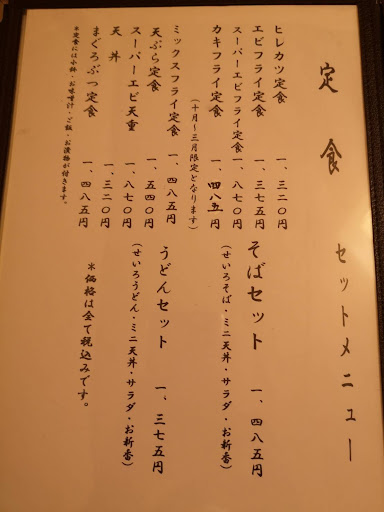 定食
ヒレカツ定食 一、三二〇円
エビフライ定食 一、三七五円
スーパーエビフライ定食 一、八七〇円
カキフライ定食 一、四八五円
(十月〜三月限定となります)
ミックスフライ定食 一、四八五円
天ぷら定食 一、五四〇円
スーパーエビ天重 一、八七〇円
天丼 一、三二〇円
まぐろぶつ定食 一、四八五円
※定食には小鉢・お味噌汁・ご飯・お漬物が付きます。
セットメニュー
そばセット 一、四八五円
(せいろそば・ミニ天丼・サラダ・お新香)
うどんセット 一、三七五円
(せいろうどん・ミニ天丼・サラダ・お新香)
※価格は全て税込みです。